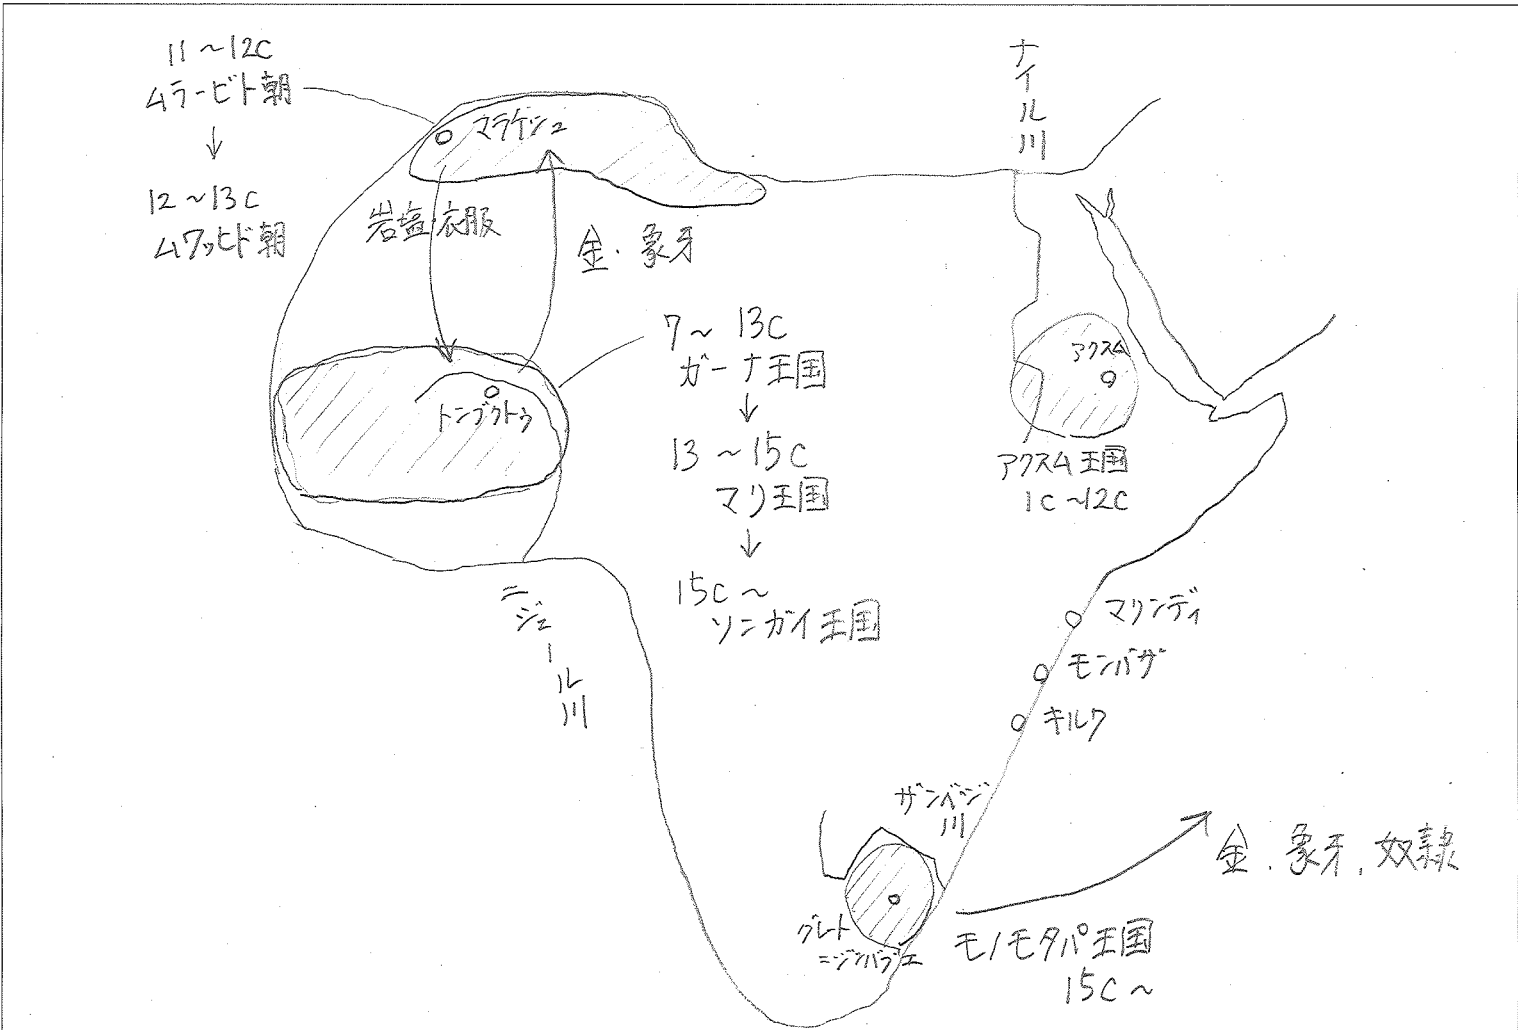 11～12C
ムラービト朝
↓
12～13C
ムワッヒド朝
マラケシュ
岩塩・衣服
金・象牙
ナイル川
7～13C
ガーナ王国
↓
13～15C
マリ王国
↓
15C～
ソンガイ王国
トンブクトゥ
ニジェール川
アクスム
アクスム王国
1C～12C
マリンディ
モンバサ
キルワ
ザンベジ
川
グレート
=ジンバブエ
モノモタパ王国
15C～
金・象牙・奴隷